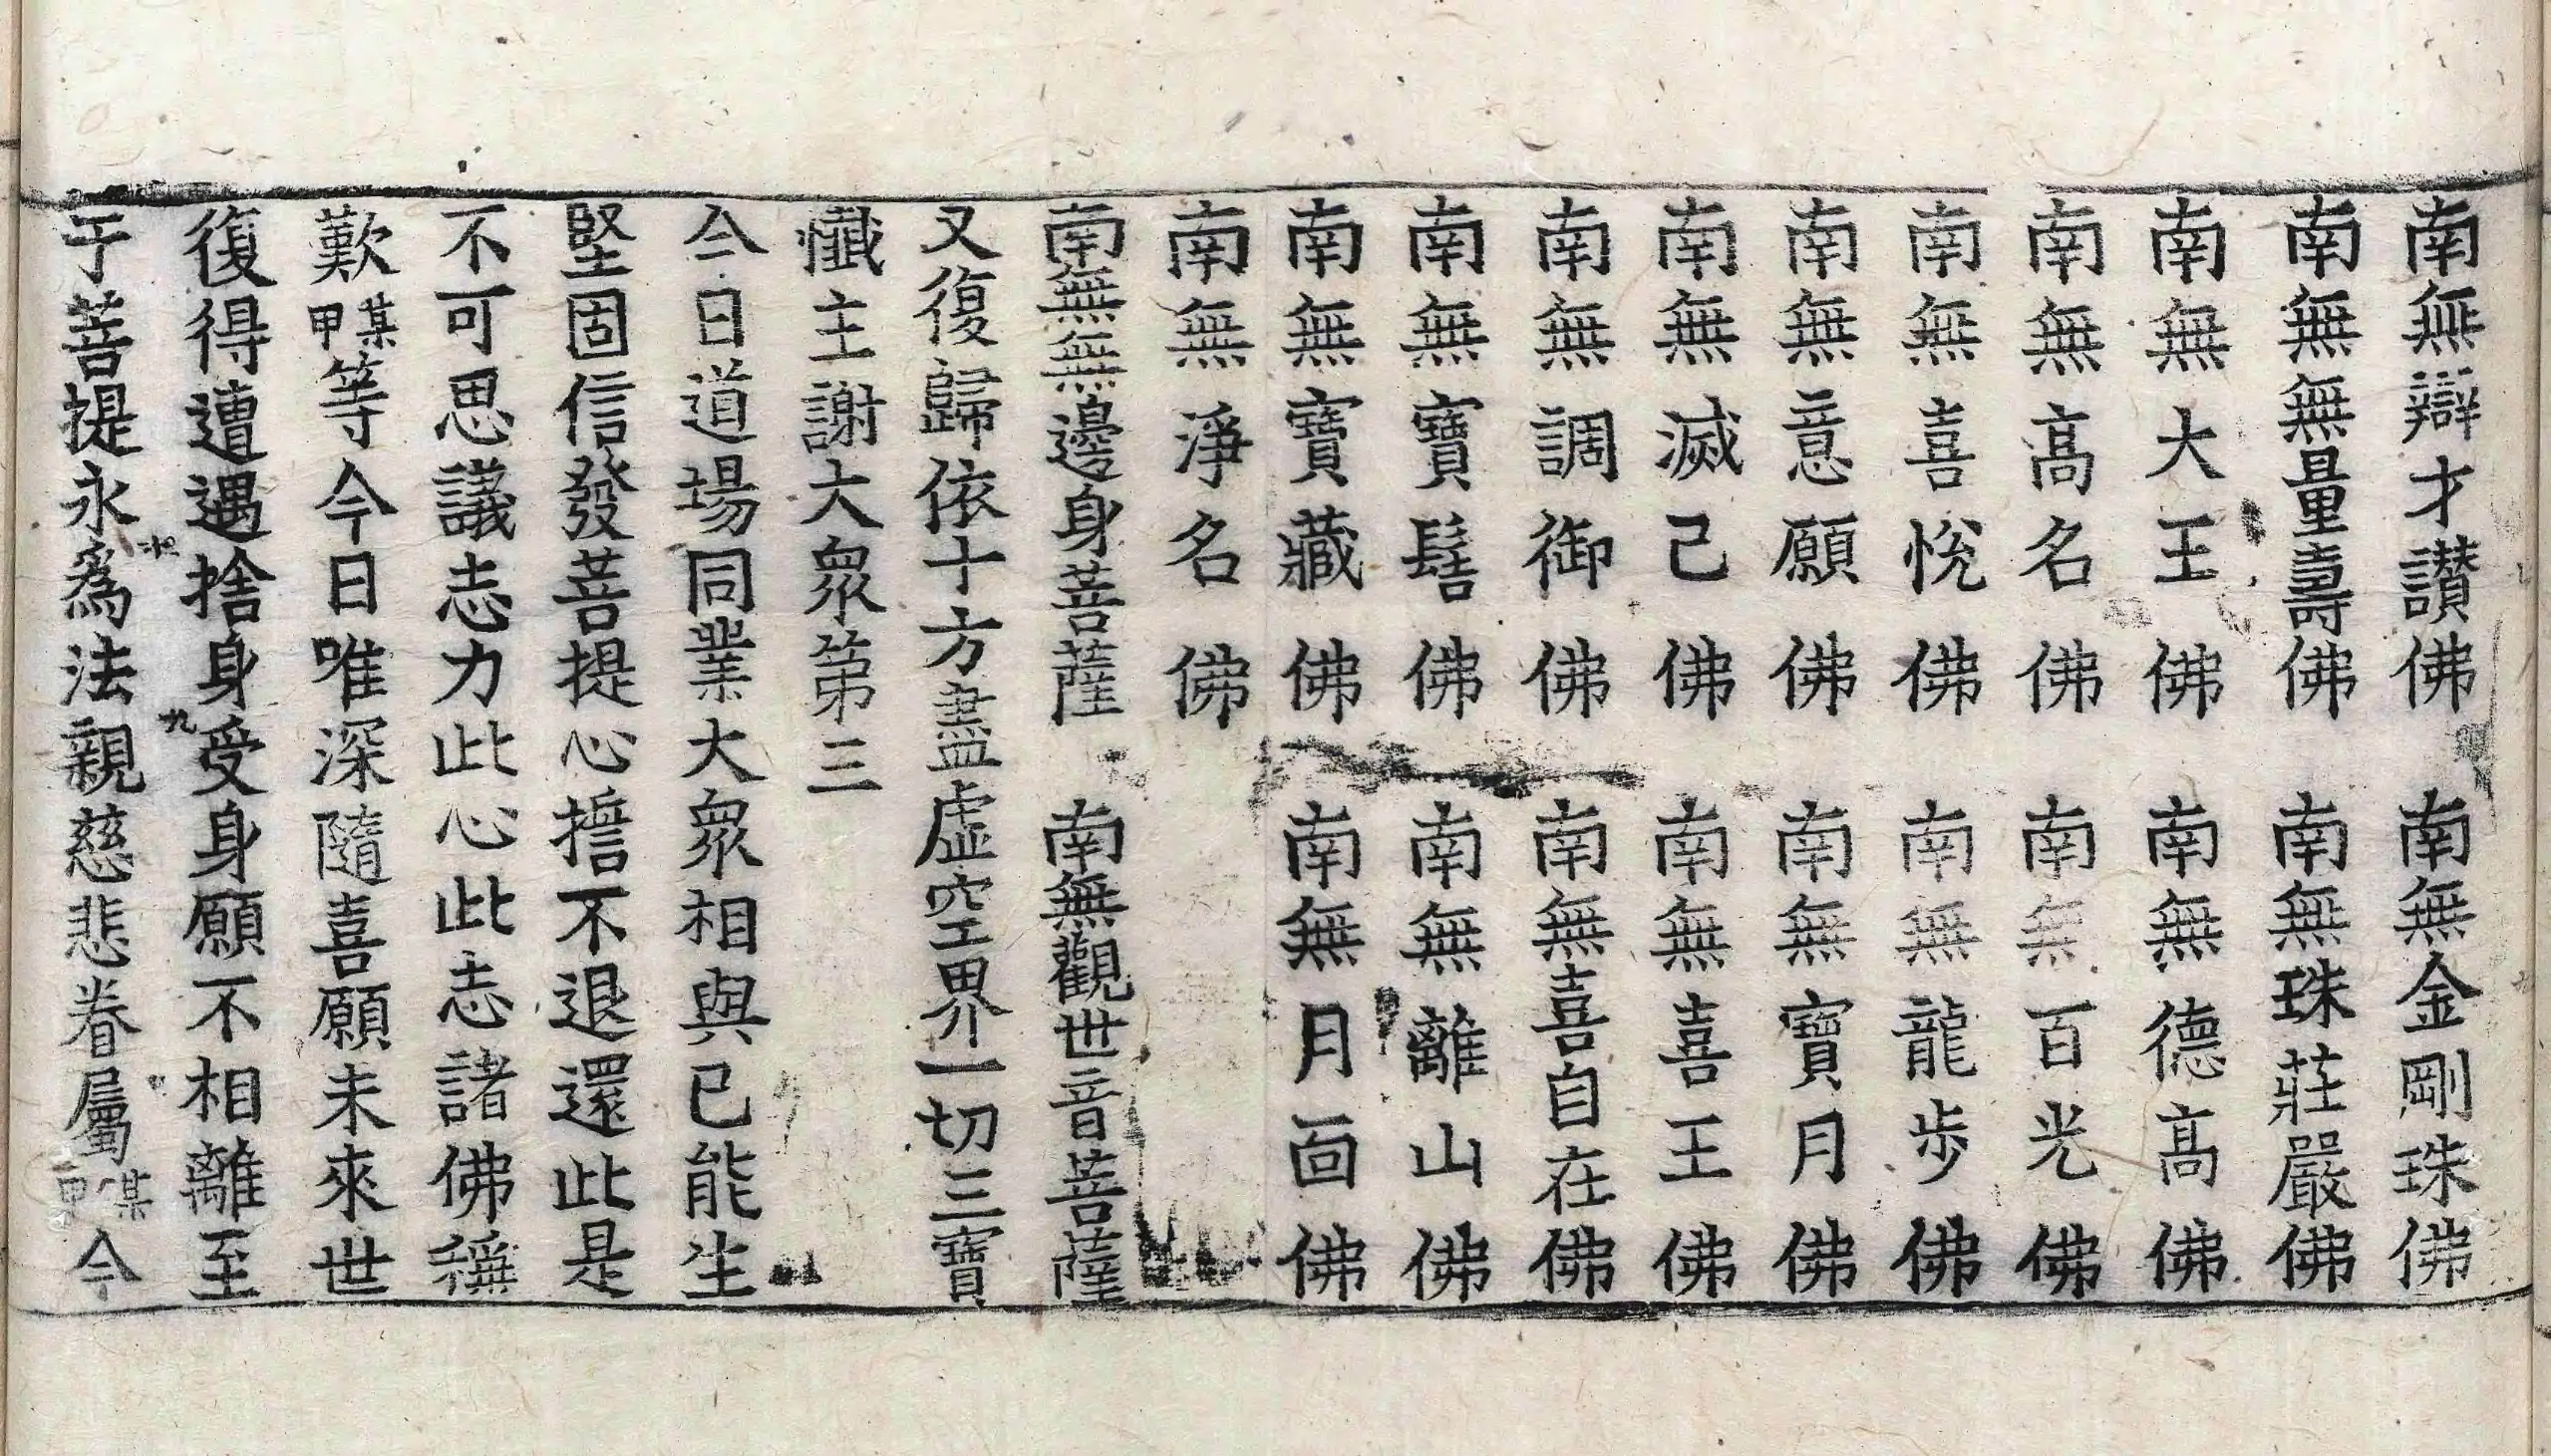 南無辯才讃佛　南無金剛珠佛
南無無量壽佛　南無珠莊嚴佛
南無大王佛　南無德高佛
南無高名佛　南無百光佛
南無喜悅佛　南無龍步佛
南無意願佛　南無寶月佛
南無滅己佛　南無喜王佛
南無調御佛　南無喜自在佛
南無寶髻佛　南無離山佛
南無寶藏佛　南無月面佛
南無淨名佛
南無無邊身菩薩　南無觀世音菩薩
又復歸依十方盡虛空界一切三寶
懺主謝大衆第三
今日道場同業大衆相與已能生
堅固信發菩提心擔不退還此是
不可思議志力此心此志諸佛稱
歎某甲等今日唯深隨喜願未來世
復得遭遇捨身受身願不相離至
于菩提永爲法親慈悲眷屬某甲今